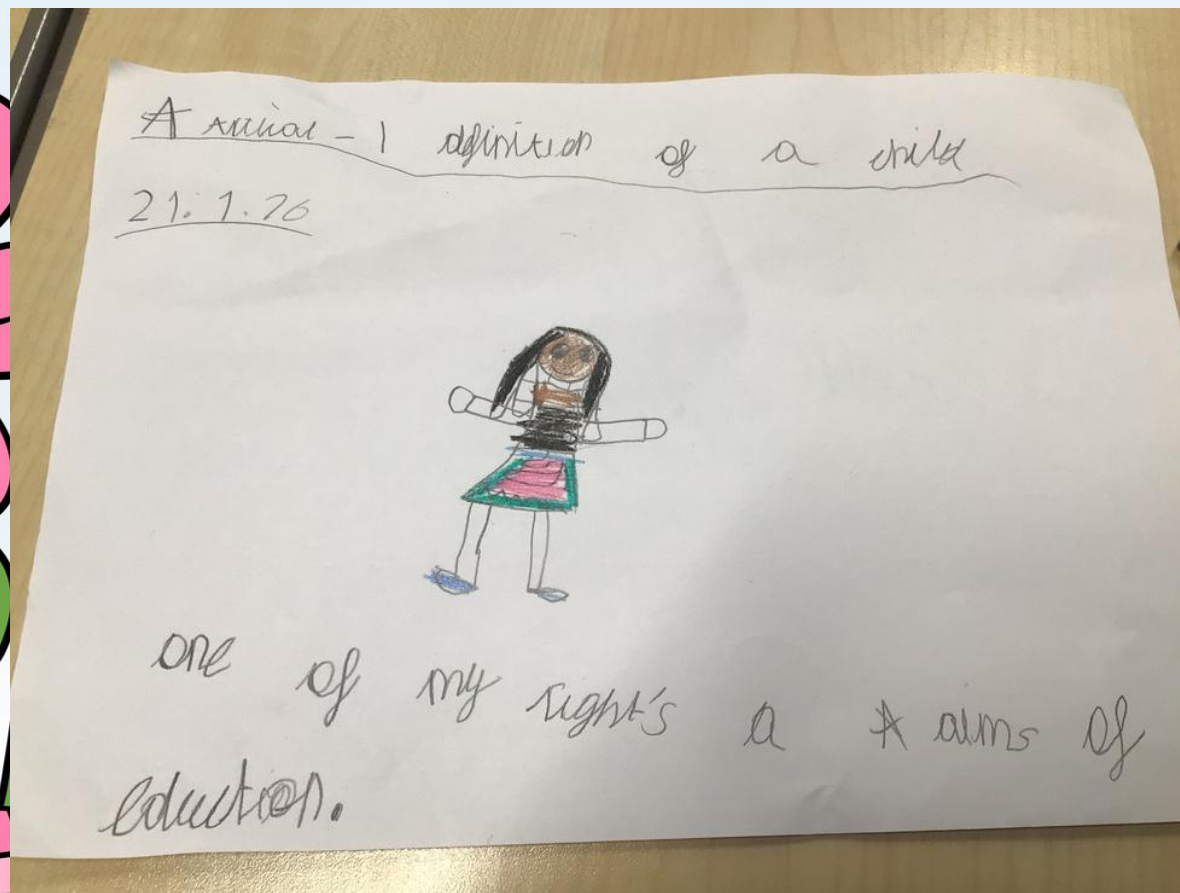 A rticial - 1 definition of a child
21.1.26
one of my right's a A aims of
eduction.